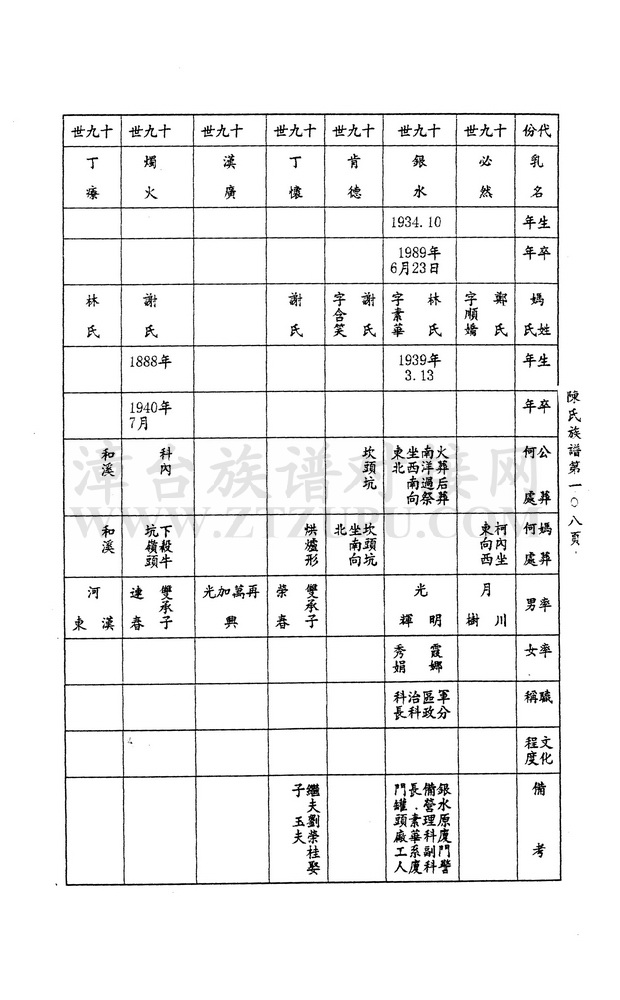 代份
乳名
生年
卒年
媽姓氏
生年
卒年
公葬
何處
媽葬
何處
率男
率女
職稱
文化
程度
備考
十九世
必然
鄭氏
字順嬌
柯內坐
東向西
月
川
樹
十九世
銀水
1934.10
1989年
6月23日
林氏
字素華
1939年
3.13
火葬后葬
南洋過祭
坐西南向
東北
光
明
輝
霞娜
秀娟
軍分
區政
治科
科長
銀水原廈門警
備營理科副科
長.素華系廈
門罐頭廠工人
十九世
肯德
謝氏
字含笑
坎頭坑
坎頭坑
坐南向
北
十九世
丁懷
謝氏
烘爐形
雙承子
榮春
繼夫劉榮桂娶
子玉夫
十九世
漢廣
再萬加光
興
十九世
燭火
謝氏
1888年
1940年
7月
科內
下殺牛
坑嶺頭
雙承子
連春
十九世
丁療
林氏
和溪
和溪
河
漢
東
陳氏族譜第一〇八頁
漳台族谱对接网
WWW.ZTZUPU.COM